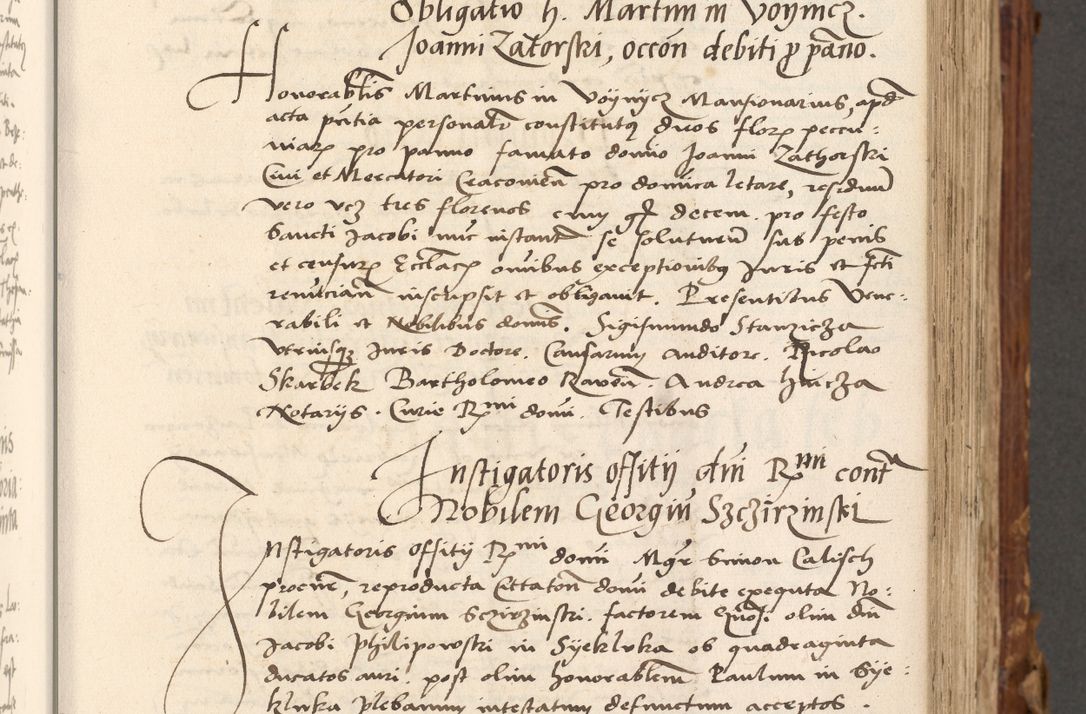 Obligatio h. Martini in Voynicz.
Joanni Zatorski, occon debiti p pano.
Honorablis Martinus in Voynycz Mansionarius, apd
acta pntia personalr constitutq duos florz peccu:
niarz pro panno famato domno Joanni Zathorski
Civi et Mercatori Cracovien pro domica letare, residuu
vero vcz tres florenos cum gr decem pro festo
Sancti Jacobi nuc instant se soluturu sub penis
et censurz Ecclacz omnibus exceptionibq Juris et fcti
renuncian inscripsit et obligavit. Presentibus Vene:
rabili et Nobilibus domis. Sigismundo Stanzicza
Utriusqz Juris Doctore. Causarum Auditore. Nicolao
Skarbek Bartholomeo Raven. Andrea
Notarijs. Curie Rmi domi. Testibus
Instigatoris offitij dni Rmi cont
Nobilem Georgiu Szczirzinski
Instigatoris Offitij Rmi domi Mgr Simon Calisch
procne, reproducta Citaton domi debite exequta No:
bilem Georgium Sczirzinski. factorem quo. olim dni
Jacobi Philipowski in Syekluka ob quadraginta
ducatos auri. post olim honorablem Paulum in Sye:
kluka Plebanum intestatum defunctum acceptos.